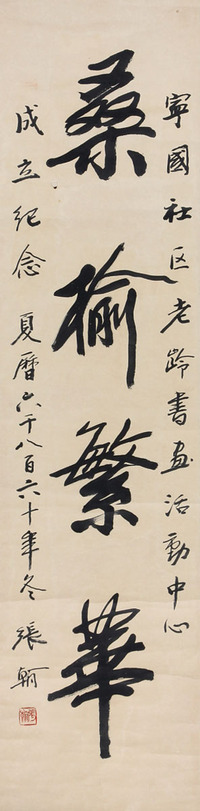 寧國社区老龄書画活動中心
桑榆繁華
成立纪念 夏曆六千八百六十年冬 張翰